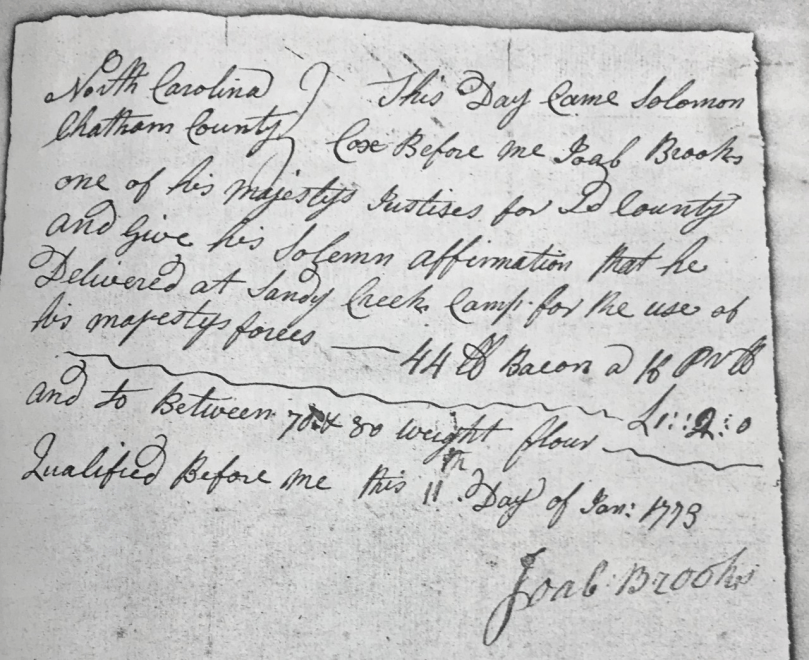 North Carolina } This Day Came Solomon
Chatham County } Cox Before me Joab Brooks
one of his majestys Justises for sd County
and Give his Solemn affirmation that he
Delivered at Sandy Creek Camp for the use of
his majestys forces — 44 lb Bacon a 6 pr lb
£1::2:0
and to Between 70 & 80 weight flour
Qualified Before me this 11th Day of Jan: 1773
Joab Brooks